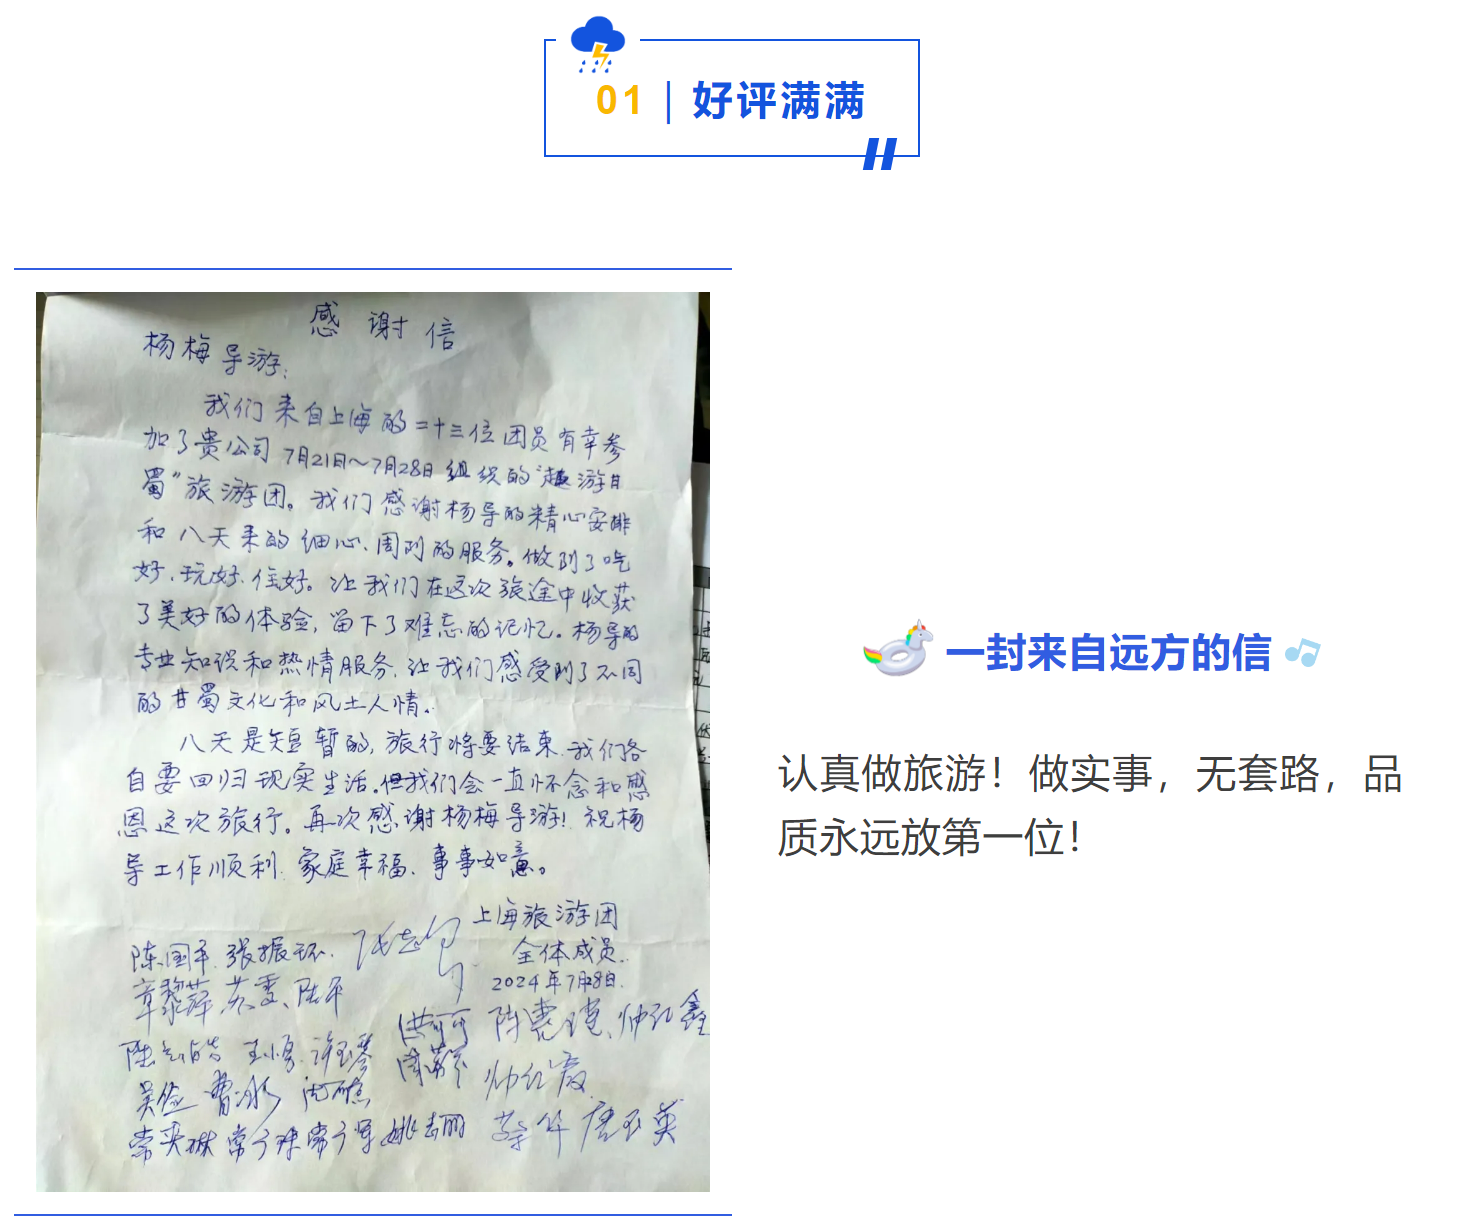 01 好评满满
感谢信
杨梅导游:
我们来自上海的二十三位团员有幸参
加了贵公司7月21日~7月28日组织的“趣游甘
蜀”旅游团。我们感谢杨导的精心安排
和八天来的细心、周到的服务。做到了吃
好、玩好、住好。让我们在这次旅途中收获
了美好的体验,留下了难忘的记忆。杨导的
专业知识和热情服务、让我们感受到了不同
的甘蜀文化和风土人情。
八天是短暂的,旅行将要结束、我们各
自要回归现实生活。但我们会一直怀念和感
恩这次旅行。再次感谢杨梅导游!祝杨
导工作顺利、家庭幸福、事事如意。
上海旅游团
全体成员
2024年7月28日
陈国平 张振环
章黎萍 苏雯、陆平
洪可可
王小勇 许玉琴
吴俭 曹冰
蔡华 唐玉英
一封来自远方的信
认真做旅游!做实事,无套路,品
质永远放第一位!